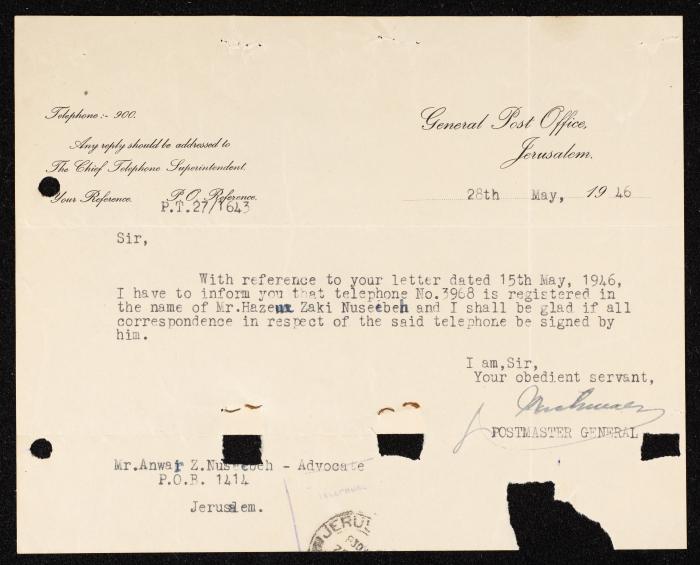 Telephone :- 900.
General Post Office,
Jerusalem.
Any reply should be addressed to
The Chief Telephone Superintendent.
Your Reference. P.O. Reference.
P.T.27/1643
28th May, 1946
Sir,
With reference to your letter dated 15th May, 1946,
I have to inform you that telephone No.3968 is registered in
the name of Mr. Zaki Nuseebeh and I shall be glad if all
correspondence in respect of the said telephone be signed by
him.
I am,Sir,
Your obedient servant,
POSTMASTER GENERAL
Mr.Anwar Z.Nuseebeh - Advocate
P.O.B. 1414
Jerusalem.
JERU